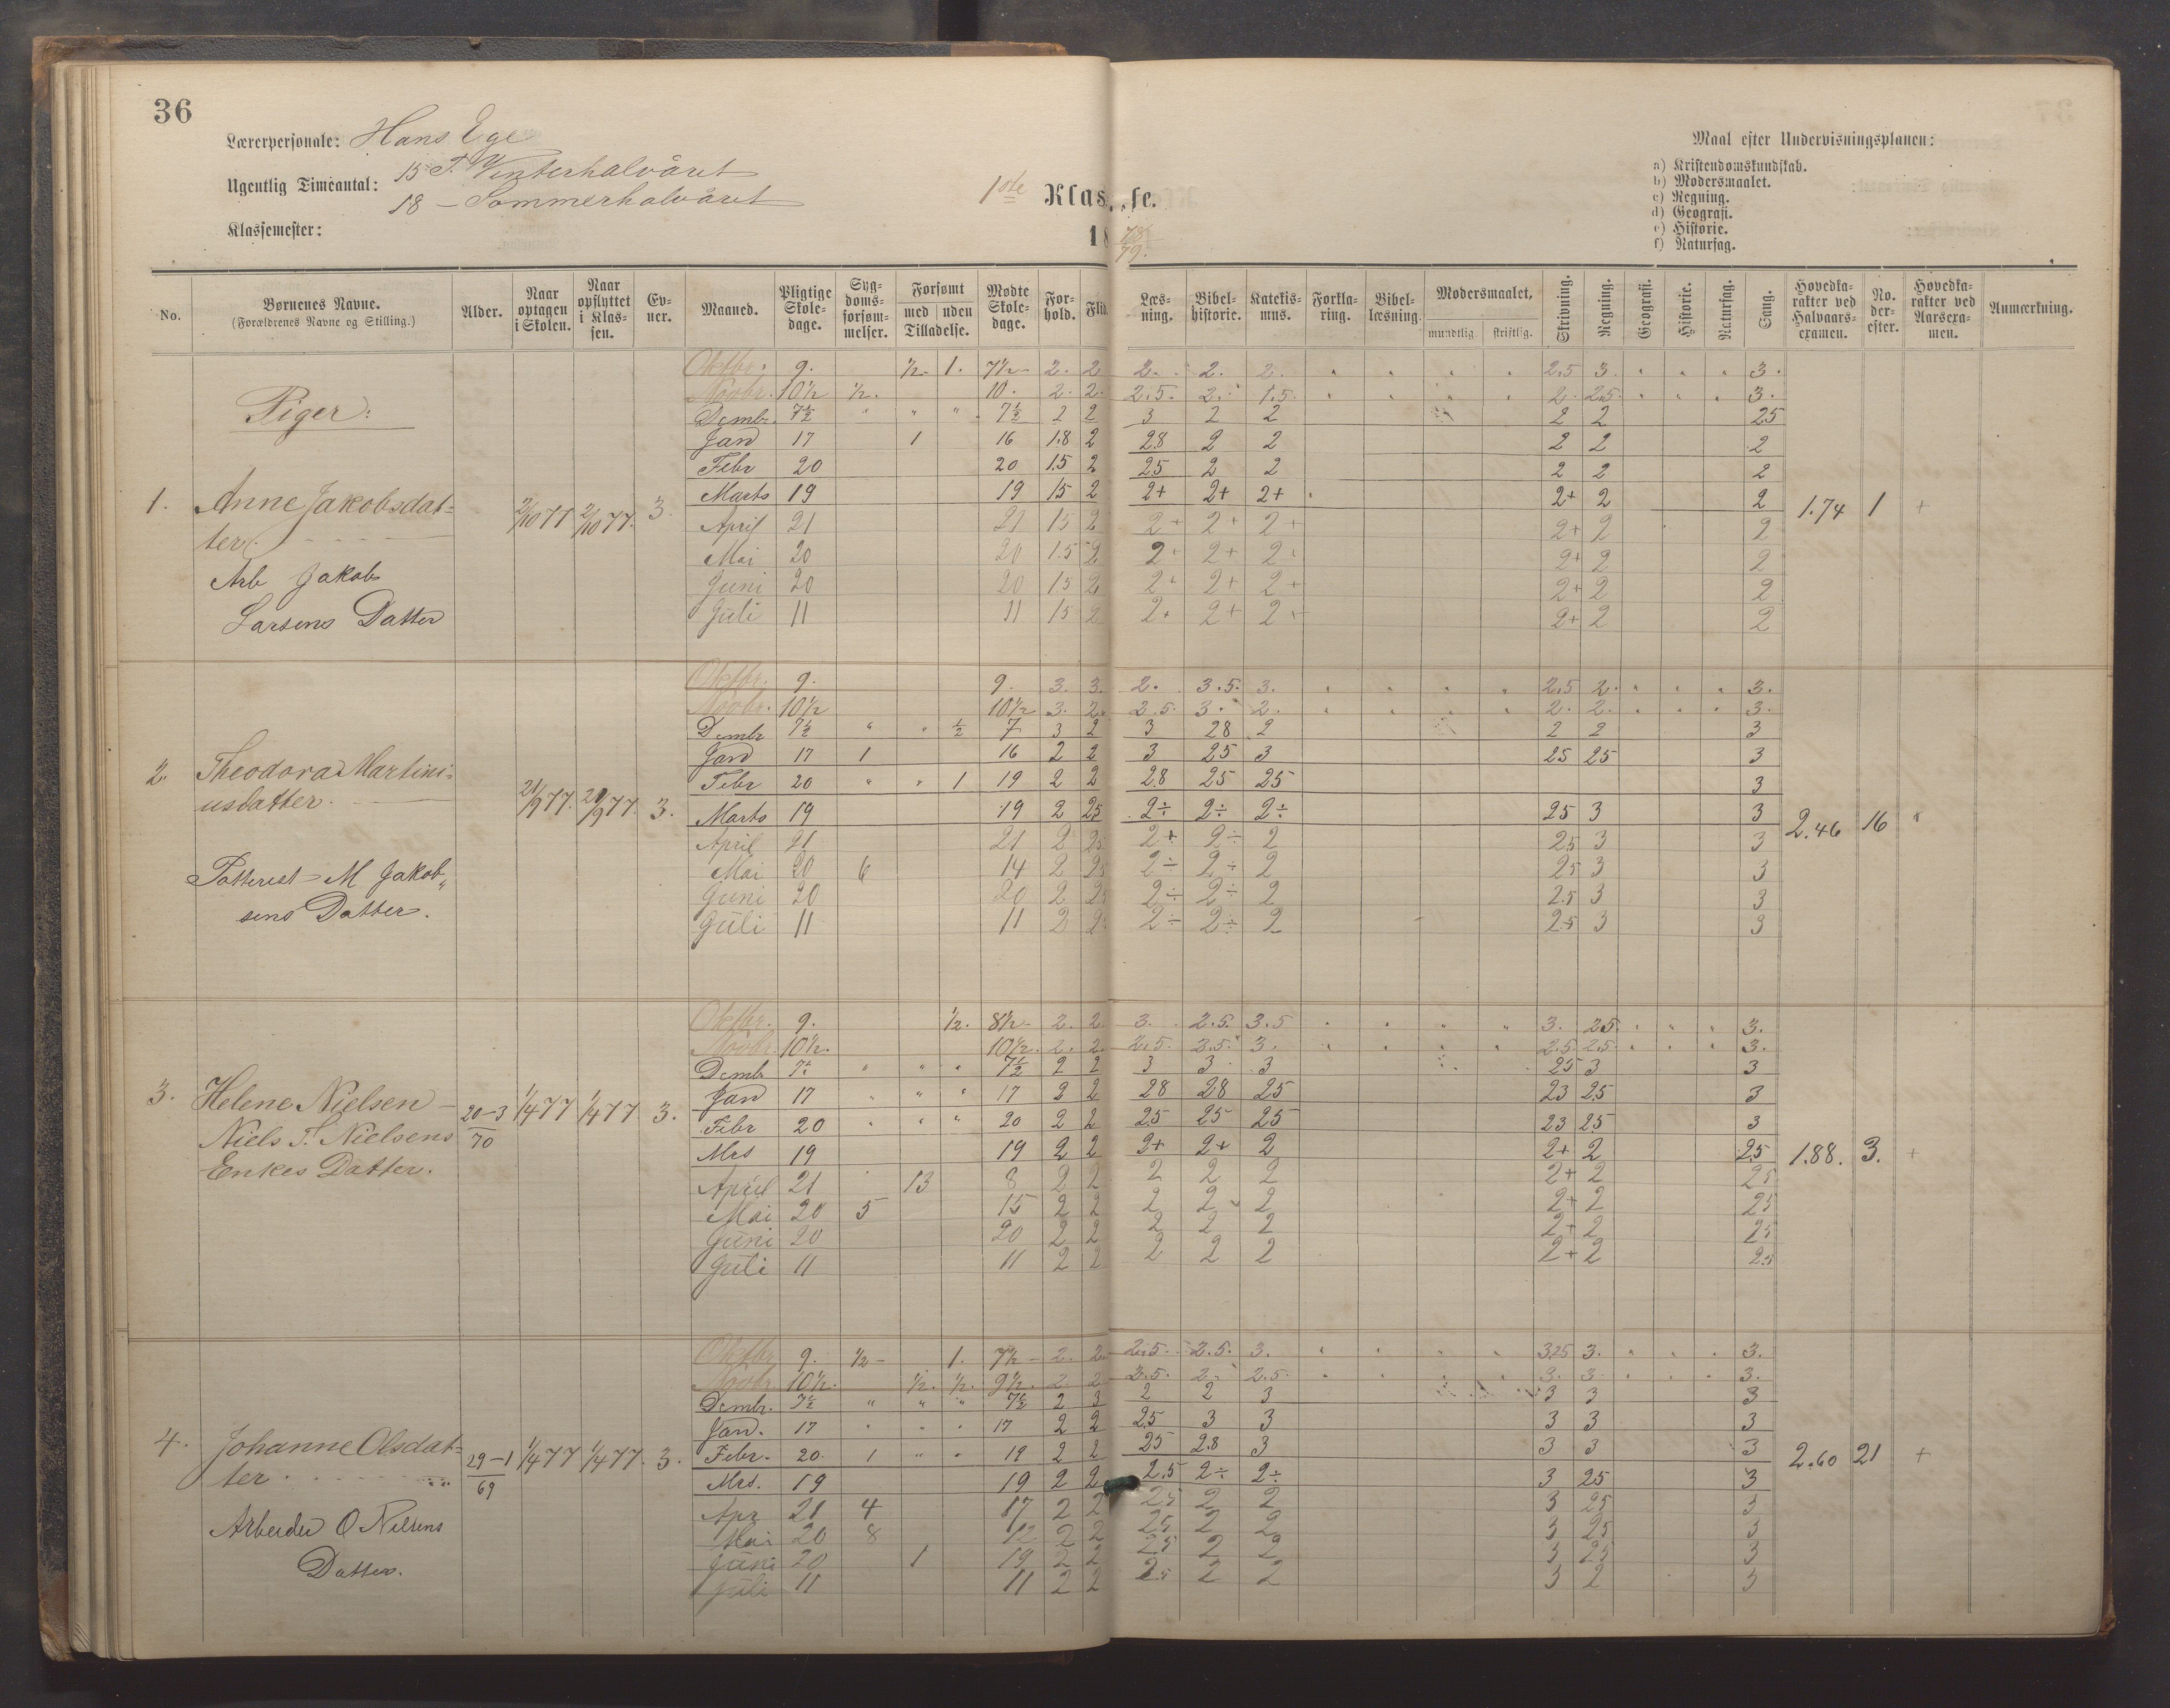 36
Lærerpersonale: Hans Ege
Ugentlig Timeantal: 15 T. Vinterhalvåret
18 – Sommerhalvåret
Klassemester:
1ste Klasse.
18 78/79.
Maal efter Undervisningsplanen:
a) Kristendomskundskab.
b) Modersmaalet.
c) Regning.
d) Geografi.
e) Historie.
f) Naturfag.
No. | Børnenes Navne. (Forældrenes Navne og Stilling.) | Alder. | Naar optagen i Skolen. | Naar opflyttet i Klassen. | Evner. | Maaned. | Pligtige Skoledage. | Sygdomsforsømmelser. | Forsømt med / uden Tilladelse. | Mødte Skoledage. | Forhold. | Flid. | Læsning. | Bibelhistorie. | Katekismus. | Forklaring. | Bibellæsning. | Modersmaalet, mundtlig. skriftlig. | Skrivning. | Regning. | Geografi. | Historie. | Naturfag. | Sang. | Hovedkarakter ved Halvaarsexamen. | No. derefter. | Hovedkarakter ved Aarsexamen. | Anmærkning.
Piger:
1. Anne Jakobsdatter. 2/10 77 2/10 77. 3. 1.74 1 +
Arb Jakob
Larsens Datter
Oktbr. 9. 1/2 1. 7 1/2 2. 2 2. 2. 2. 2.5 3. 3.
Novbr. 10 1/2 1/2. 10. 2. 2. 2.5. 2. 1.5. 2. 2.5. 3.
Dcmbr. 7 1/2 " " " 7 1/2 2 2 3 2 2 2 2 25
Jan 17 1 16 1.8 2 28 2 2 2 2 2
Febr 20 20 15 2 25 2 2 2 2 2
Marts 19 19 15 2 2+ 2+ 2+ 2+ 2 2
April 21 21 15 2 2+ 2+ 2+ 2+ 2 2
Mai 20 20 1.5 2 2+ 2+ 2+ 2+ 2 2
Juni 20 20 15 2 2+ 2+ 2+ 2+ 2 2
Juli 11 11 15 2 2+ 2+ 2+ 2+ 2 2
2. Theodora Martiniusdatter. 21/9 77. 21/9 77. 3. 2.46 16
M Jakobsens Datter.
Oktbr. 9. 9. 3. 3. 2. 3.5. 3. 2.5 2. 3.
Novbr. 10 1/2 10 1/2 3. 2. 2.5. 3. 2. 2. 2. 3.
Dcmbr 7 1/2 " " 1/2 7 3 2 3 28 2 2 2 3
Jan 17 1 16 2 2 3 25 3 25 25 3
Febr 20 " " 1 19 2 2 28 25 25 3
Marts 19 19 2 25 2÷ 2÷ 2÷ 25 3 3
April 21 21 2 25 2+ 2÷ 2 25 3 3
Mai 20 6 14 2 25 2÷ 2÷ 2 25 3 3
Juni 20 20 2 25 2÷ 2÷ 2 2.5 3 3
Juli 11 11 2 2 2÷ 2÷ 2 2.5 3 3
3. Helene Nielsen 20–3/70 1/4 77 1/4 77. 3. 1.88. 3. +
Niels T. Nielsens
Enkes Datter.
Oktbr. 9. 1/2. 8 1/2 2. 2. 3. 2.5. 3.5 3. 25. 3.
Novbr. 10 1/2. 10 1/2. 2. 2. 2.5. 3.5. 3. 2.5. 2.5. 3.
Dcmbr 7 1/2 " " " 7 1/2 2 2 3 3 3 25 3 3
Jan 17 " " " 17 2 2 28 28 25 23 25 3
Febr 20 " " " 20 2 2 25 25 25 23 25 3
Mrs 19 19 2 2 2+ 2+ 2 2+ 2 25
April 21 13 8 2 2 2 2 2 2+ 2 25
Mai 20 5 15 2 2 2 2 2 2+ 2 25
Juni 20 20 2 2 2 2 2 2+ 2 25
Juli 11 11 2 2 2 2 2 2+ 2 2.5
4. Johanne Olsdatter. 29–1/69 1/4 77 1/4 77. 3. 2.60 21 +
Arbeider O Nilsens
Datter.
Oktbr 9. 1/2 – 1. 7 1/2 – 2. 2. 2.5. 2.5. 3. 3.25 3. 3.
Novbr. 10 1/2. 1/2. 1/2. 9 1/2. 2. 2 3.5. 2. 2.5. 3. 3. 3.
Dcmbr. 7 1/2 " " " 7 1/2 2 3 2 2 3 3 3 3
Jan. 17 " " " 17 2 2 25 3 3 3 3 3
Febr. 20 1 " " 19 2 2 25 2.8 3 3 3 3
Mrs. 19 19 2 2 2.5 2÷ 2÷ 3 25 3
Apr 21 4 17 2 2 25 2 2 3 25 3
Mai 20 8 12 2 2 25 2 2 3 25 3
Juni 20 1 19 2 2 25 2 2 3 25 3
Juli 11 11 2 2 2.5 2 2 3 2 3